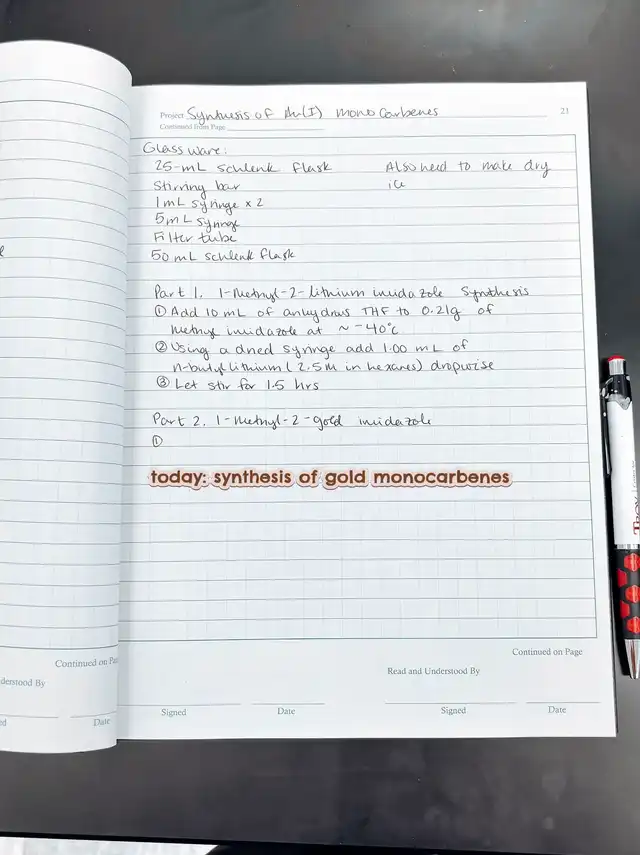 Project Synthesis of Au(I) mono carbenes
21
Continued from Page
Glassware:
25-mL schlenk flask
Also need to make dry
ice
Stirring bar
1mL syringe x 2
5mL syringe
Filter tube
50 mL schlenk flask
Part 1. 1-Methyl-2-lithium imidazole Synthesis
① Add 10 mL of anhydrous THF to 0.21g of
methyl imidazole at ~ -40°C
② Using a dried syringe add 1.00 mL of
n-butyllithium (2.5M in hexanes) dropwise
③ Let stir for 1.5 hrs
Part 2. 1-Methyl-2-gold imidazole
①
today: synthesis of gold monocarbenes
Continued on Page
Read and Understood By
Signed
Date
Signed
Date
Continued on Pa
derstood By
ed
Date
TROY